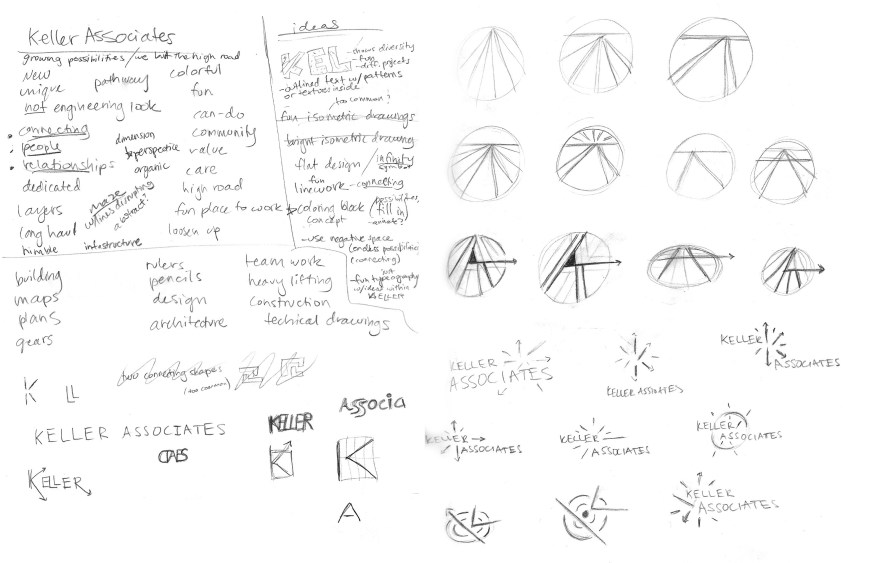 Keller Associates
growing possibilities / we built the high road
New
unique
pathway
colorful
fun
not engineering look
can-do
connecting
people
relationships
dimension
perspective
organic
community
value
care
dedicated
high road
layers
maze
w/lines disrupting
abstract?
fun place to work
long haul
loosen up
humble
infastructure
ideas
KEL
- shows diversity
- fun
- diff. projects
- outlined text w/ patterns
or textures inside
too common?
fun isometric drawings
bright isometric drawings
flat design / infinity
symbol
fun
linework - connecting
coloring block
concept
(possibilities,
fill in)
- use negative space
(endless possibilities
connecting)
- fun typography
w/ideas within
KELLER
building
maps
plans
gears
rulers
pencils
design
architecture
team work
heavy lifting
construction
techical drawings
K
LL
two connecting shapes
(too common)
KELLER ASSOCIATES
KELLER
Associa
K
K
KELLER
A
KELLER
ASSOCIATES
KELLER ASSOCIATES
KELLER
ASSOCIATES
KELLER
ASSOCIATES
KELLER
ASSOCIATES
KELLER
ASSOCIATES
KELLER
ASSOCIATES